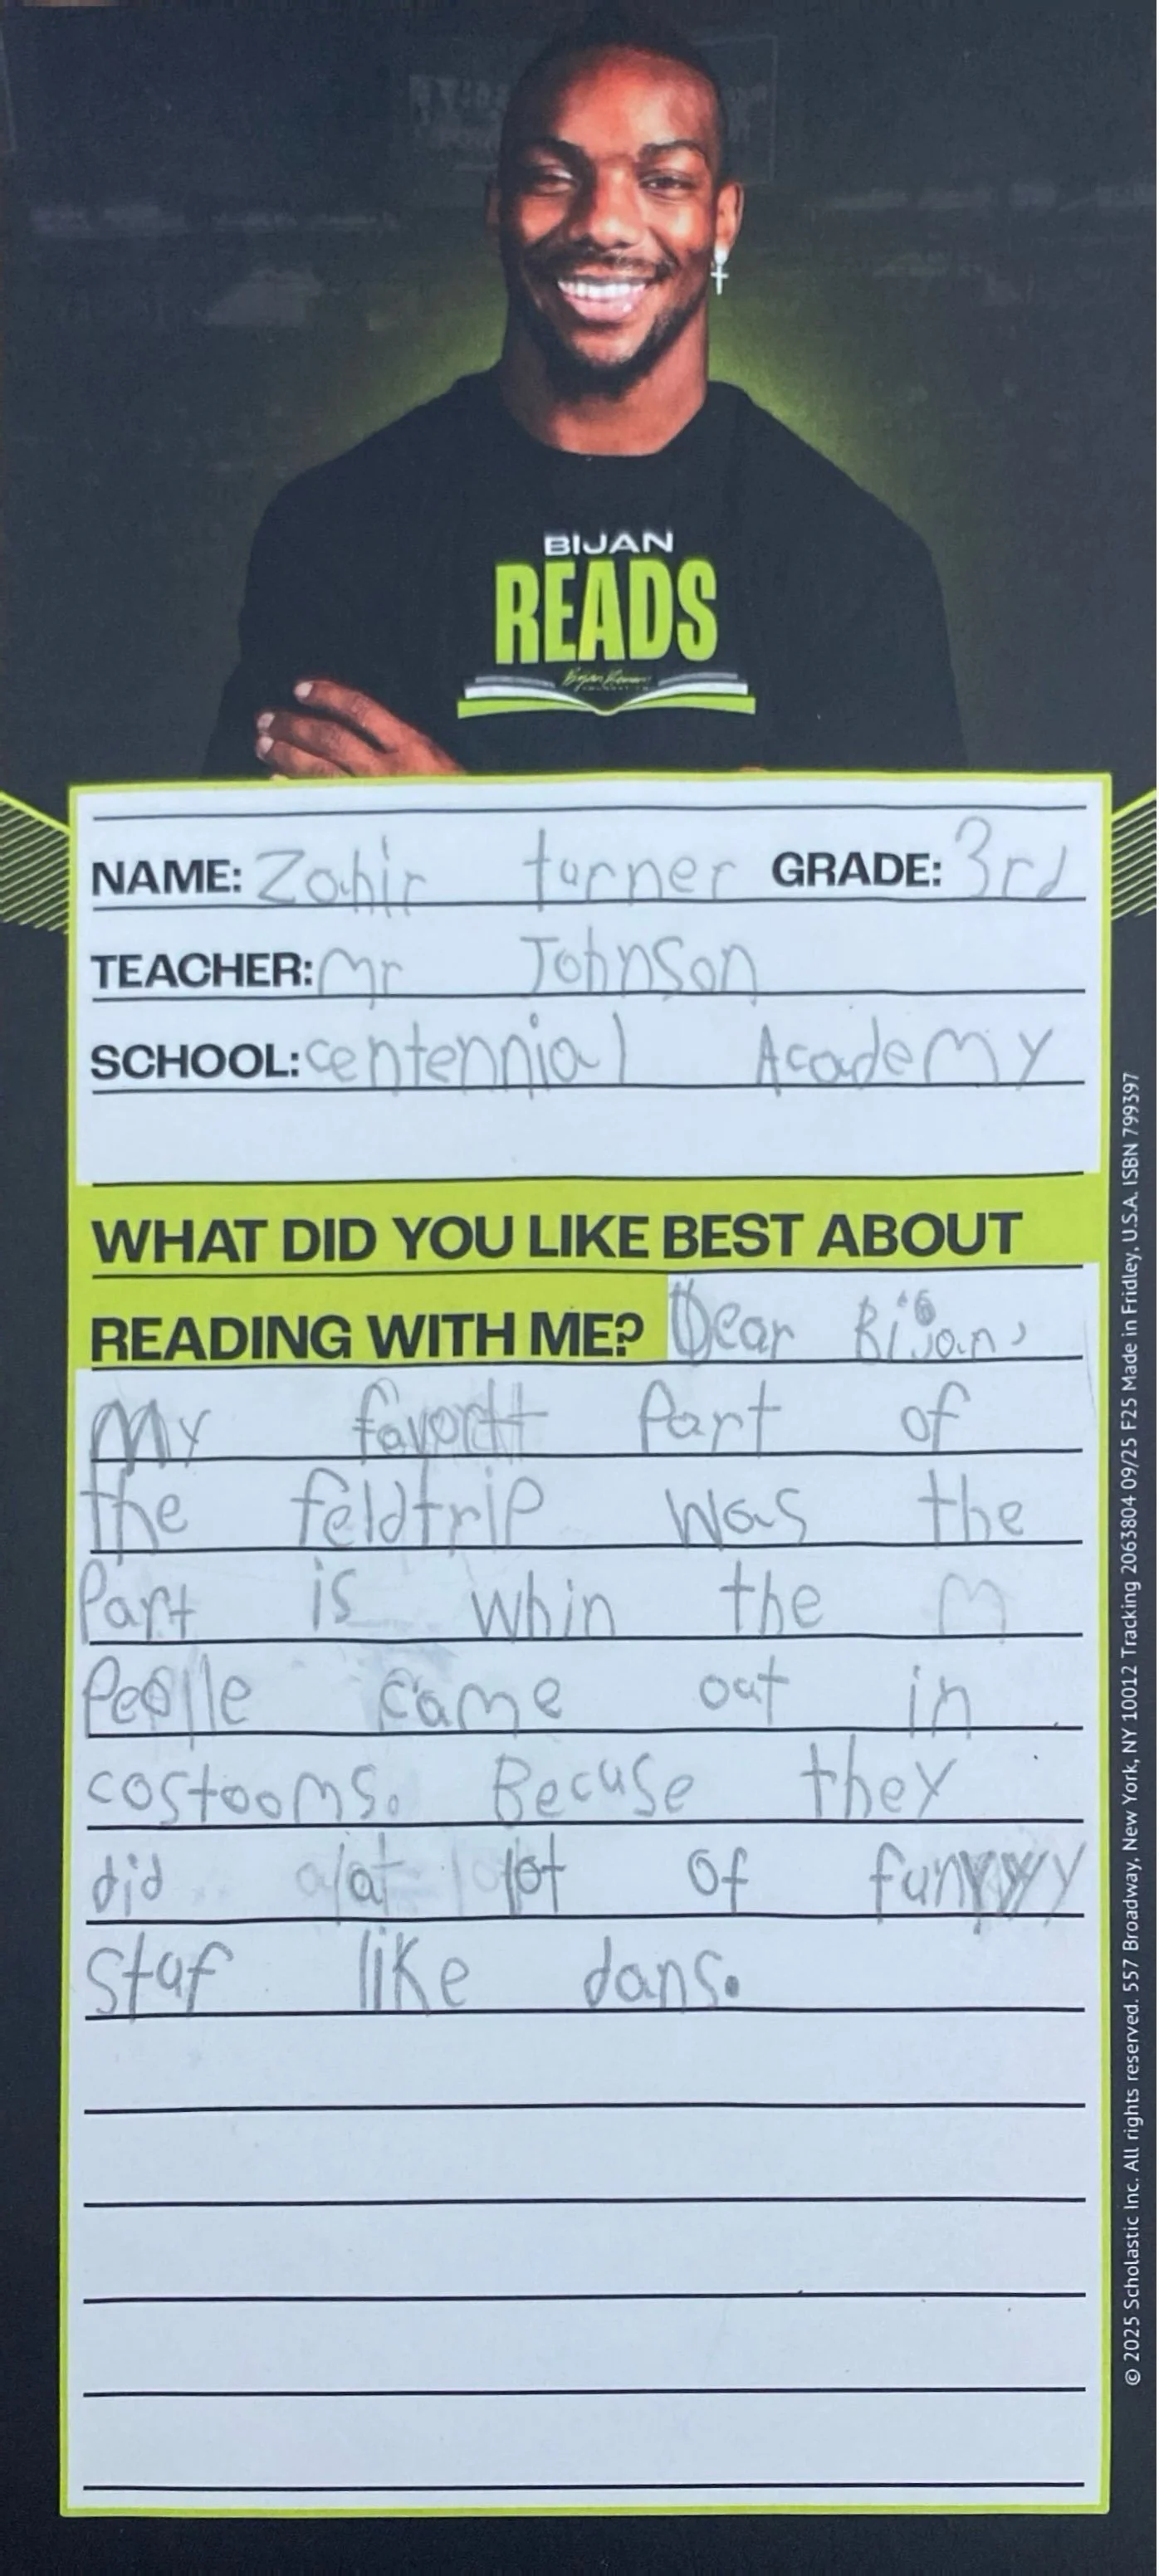 BIJAN
READS
NAME: Zahir turner GRADE: 3rd
TEACHER: Mr Johnson
SCHOOL: centennial Academy
WHAT DID YOU LIKE BEST ABOUT
READING WITH ME? Dear Bijan,
My favoritt Part of
the feldtrip was the
Part is whin the m
Peolle came out in
costooms. Becuse they
did alat lot of funyyyy
staf like dans.
© 2025 Scholastic Inc. All rights reserved. 557 Broadway, New York, NY 10012 Tracking 2063804 09/25 F25 Made in Fridley, U.S.A. ISBN 799397